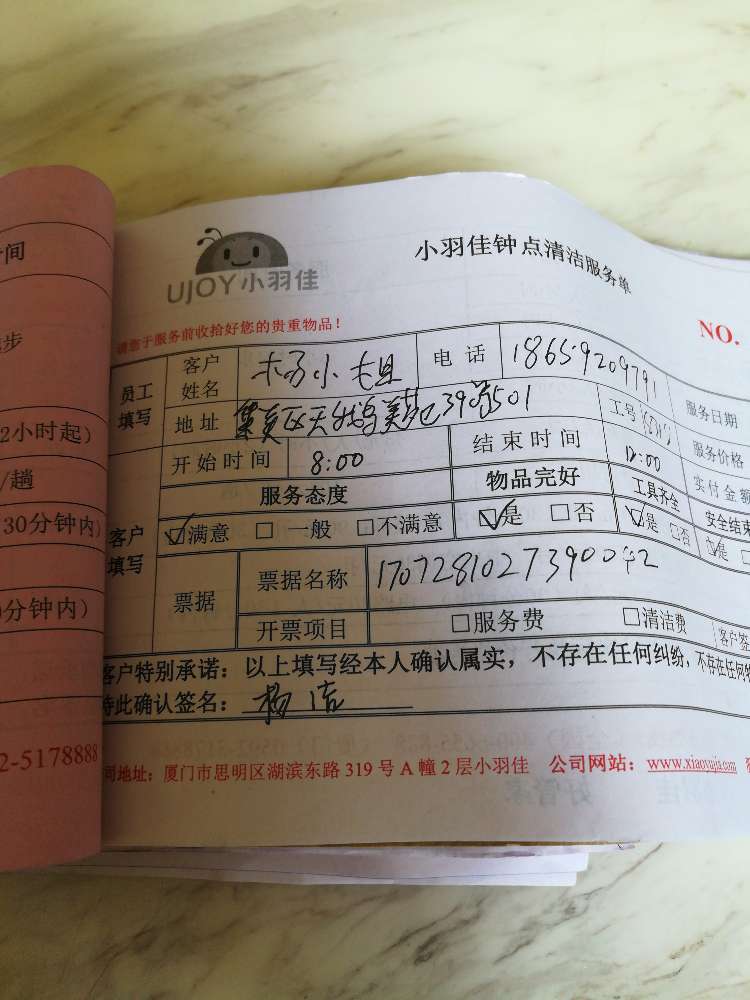 间
步
2小时起）
/趟
30分钟内）
0分钟内）
2-5178888
UJOY小羽佳
小羽佳钟点清洁服务单
NO.
请您于服务前收拾好您的贵重物品！
员工填写 客户姓名 杨小姐 电话 18659209791 服务日期
地址 集美区 390 501 工号 服务价格
客户填写 开始时间 8:00 结束时间 12:00 实付金额
服务态度 物品完好 工具齐全 安全结束
☑满意 □一般 □不满意 ☑是 □否 ☑是 □否 ☑是
票据 票据名称 1707281027390042
开票项目 □服务费 □清洁费 客户签
客户特别承诺：以上填写经本人确认属实，不存在任何纠纷，不存在任何
特此确认签名：杨洁
司地址：厦门市思明区湖滨东路 319 号 A 幢 2 层小羽佳 公司网站：www.xiaoyujia.com